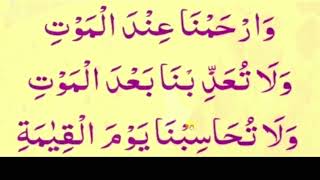 وَارْحَمْنَا عِنْدَ الْمَوْتِ
وَلَا تُعَذِّ بْنَا بَعْدَ الْمَوْتِ
وَلَا تُحَاسِبْنَا يَوْمَ الْقِيٰمَةِ